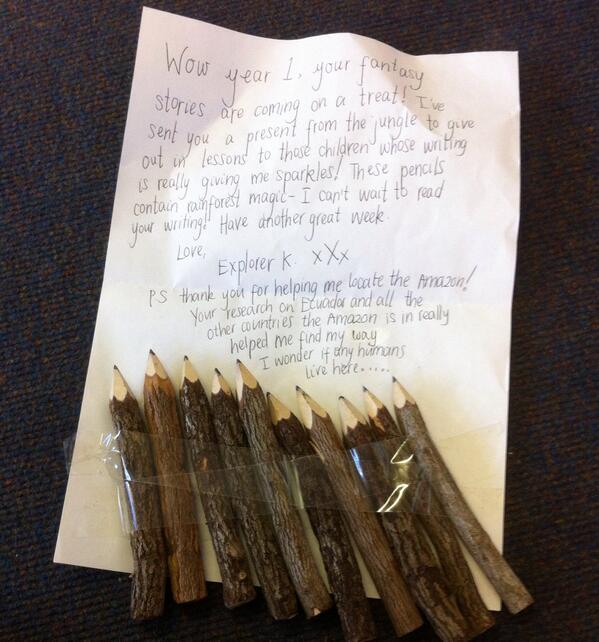 Wow year 1, your fantasy
stories are coming on a treat! I've
sent you a present from the jungle to give
out in lessons to those children whose writing
is really giving me sparkles! These pencils
contain rainforest magic - I can't wait to read
your writing!! Have another great week.
Love,
Explorer K. xXx
PS thank you for helping me locate the Amazon!
Your research on Ecuador and all the
other countries the Amazon is in really
helped me find my way
I wonder if any humans
live here.....